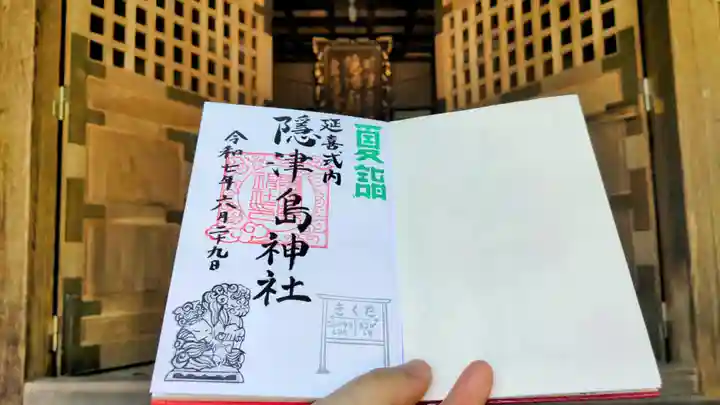 夏詣
延喜式内
隠津島神社
令和七年六月二十九日
さくた